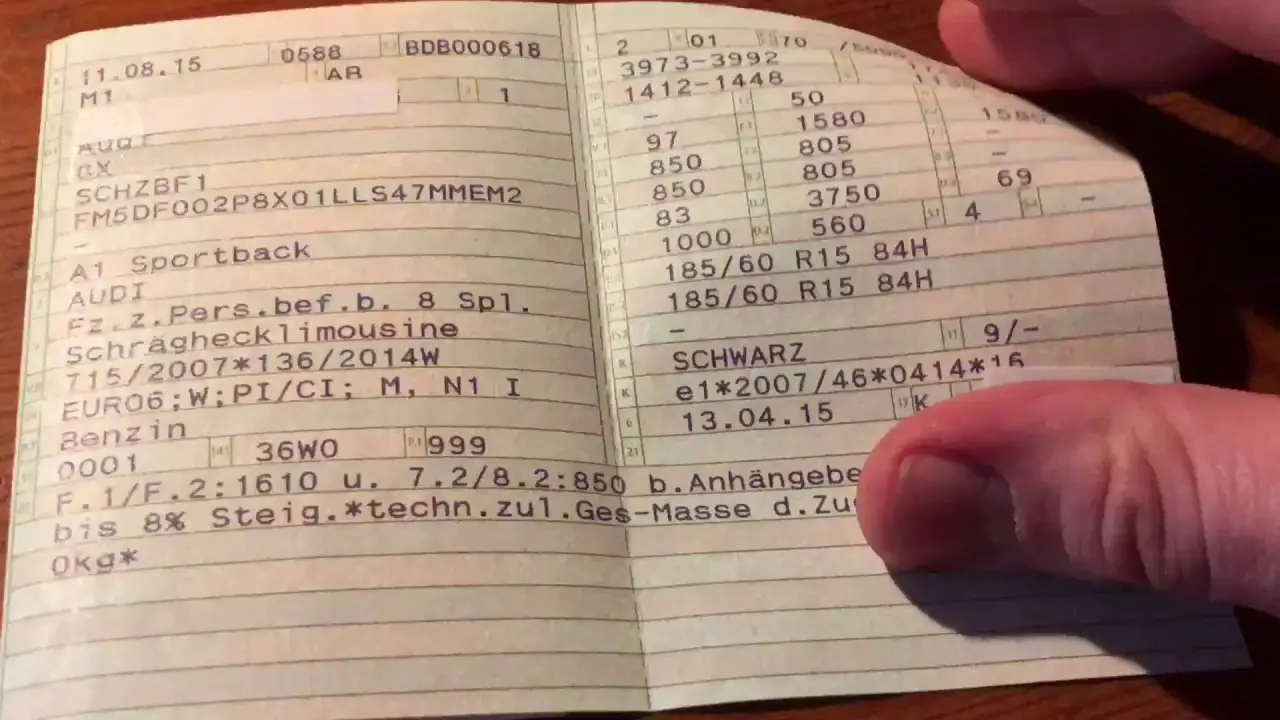 11.08.15 0588 BDB000618
M1 AB
1
AUDI
8X
SCHZBF1
FM5DF002P8X01LLS47MMEM2
–
A1 Sportback
AUDI
Fz.z.Pers.bef.b. 8 Spl.
Schräghecklimousine
715/2007*136/2014W
EURO6;W;PI/CI; M, N1 I
Benzin
0001 36W0 999
F.1/F.2:1610 u. 7.2/8.2:850 b.Anhängebe
bis 8% Steig.*techn.zul.Ges-Masse d.Zu
0kg*
2 01 70
3973-3992
1412-1448
– 50
97 1580 1580
850 805 –
850 805 –
83 3750 69
1000 560 4 –
185/60 R15 84H
185/60 R15 84H
–
SCHWARZ 9/-
e1*2007/46*0414*16
13.04.15 K